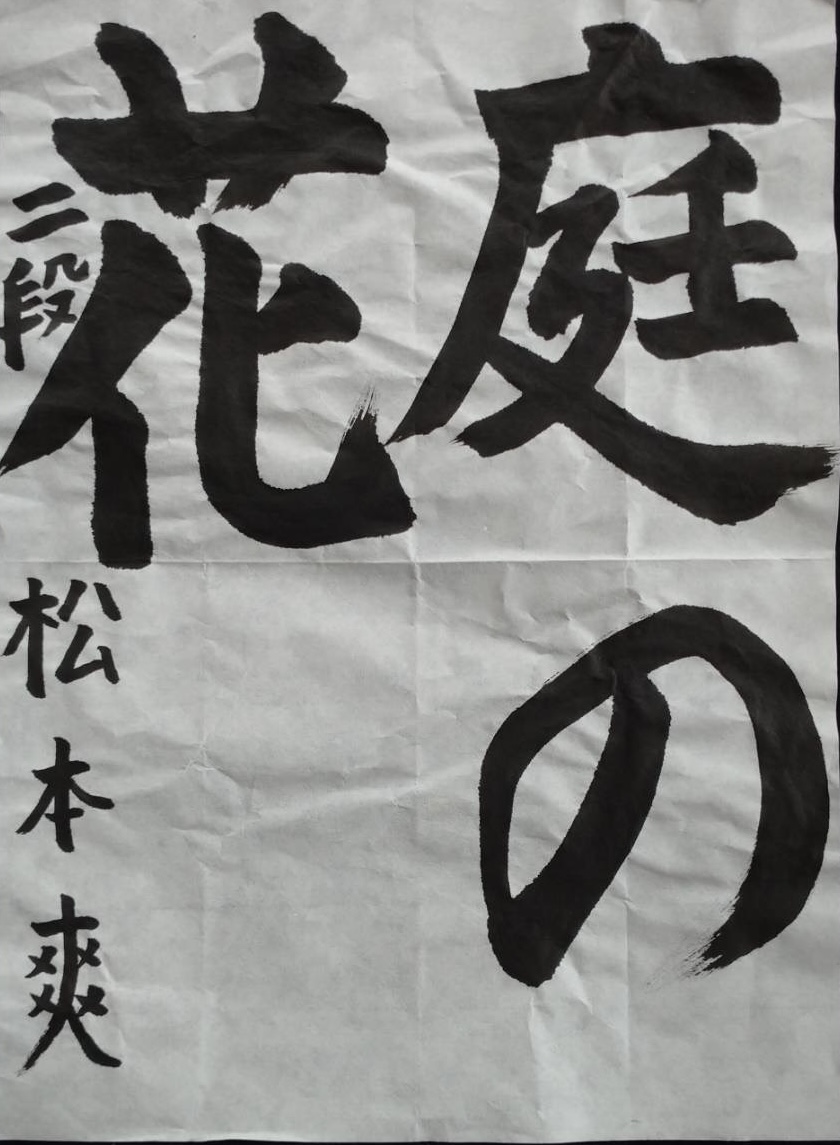 庭の
花
二段 松本爽